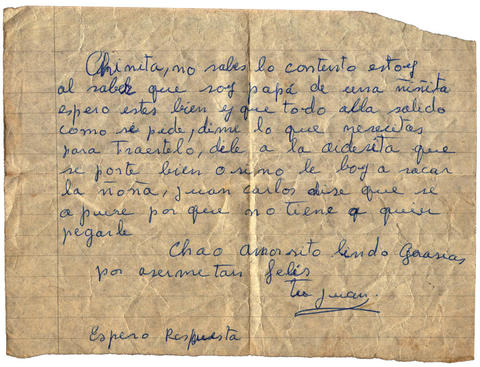 Chinita, no sabes lo contento estoy
al saber que soy papá de una niñita
espero estes bien y que todo alla salido
como se pide, dime lo que nesecitas
para traertelo, dile a la aidesita que
se porte bien o sino le boy a sacar
la ñoña, juan carlos dise que se
apure por que no tiene a quien
pegarle
Chao amorsito lindo Grasias
por aserme tan felis
tu Juan.
Espero Respuesta